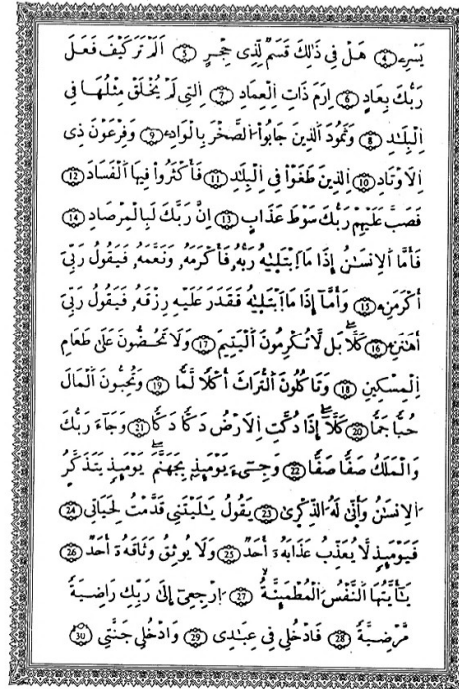 يَسْرِۦ ٤ هَلْ فِى ذَٰلِكَ قَسَمٌ لِّذِى حِجْرٍ ٥ اَلَمْ تَرَ كَيْفَ فَعَلَ
رَبُّكَ بِعَادٍ ٦ اِرَمَ ذَاتِ اِلْعِمَادِ ٧ اِلتِى لَمْ يُخْلَقْ مِثْلُهَا فِى
اِلْبِلَٰدِ ٨ وَثَمُودَ اَلذِينَ جَابُوا۟ اُلصَّخْرَ بِالْوَادِۦ ٩ وَفِرْعَوْنَ ذِى
اِلَاوْتَادِ ١٠ اِلذِينَ طَغَوْا۟ فِى اِلْبِلَٰدِ ١١ فَأَكْثَرُوا۟ فِيهَا اَلْفَسَادَ ١٢
فَصَبَّ عَلَيْهِمْ رَبُّكَ سَوْطَ عَذَابٍ ١٣ اِنَّ رَبَّكَ لَبِالْمِرْصَادِ ١٤
فَأَمَّا اَلِانسَٰنُ إِذَا مَا اَبْتَلِيٰهُ رَبُّهُۥ فَأَكْرَمَهُۥ وَنَعَّمَهُۥ فَيَقُولُ رَبِّىَ
أَكْرَمَنِۦ ١٥ وَأَمَّآ إِذَا مَا اَبْتَلِيٰهُ فَقَدَرَ عَلَيْهِ رِزْقَهُۥ فَيَقُولُ رَبِّىَ
أَهَٰنَنِۦ ١٦ كَلَّا بَل لَّا تُكْرِمُونَ اَلْيَتِيمَ ١٧ وَلَا تَحُضُّونَ عَلَىٰ طَعَامِ
اِلْمِسْكِينِ ١٨ وَتَاكُلُونَ اَلتُّرَاثَ أَكْلًا لَّمًّا ١٩ وَتُحِبُّونَ اَلْمَالَ
حُبًّا جَمًّا ٢٠ كَلَّا إِذَا دُكَّتِ اِلَارْضُ دَكًّا دَكًّا ٢١ وَجَآءَ رَبُّكَ
وَالْمَلَكُ صَفًّا صَفًّا ٢٢ وَجِاْىٓءَ يَوْمَئِذٍ بِجَهَنَّمَ يَوْمَئِذٍ يَتَذَكَّرُ
اُلِانسَٰنُ وَأَنّىٰ لَهُ اُلذِّكْرىٰ ٢٣ يَقُولُ يَٰلَيْتَنِى قَدَّمْتُ لِحَيَاتِى ٢٤
فَيَوْمَئِذٍ لَّا يُعَذِّبُ عَذَابَهُۥٓ أَحَدٌ ٢٥ وَلَا يُوثِقُ وَثَاقَهُۥٓ أَحَدٌ ٢٦
يَٰٓأَيَّتُهَا اَلنَّفْسُ اُلْمُطْمَئِنَّةُ ٢٧ اُرْجِعِىٓ إِلَىٰ رَبِّكِ رَاضِيَةً
مَّرْضِيَّةً ٢٨ فَادْخُلِى فِى عِبَٰدِى ٢٩ وَادْخُلِى جَنَّتِى ٣٠